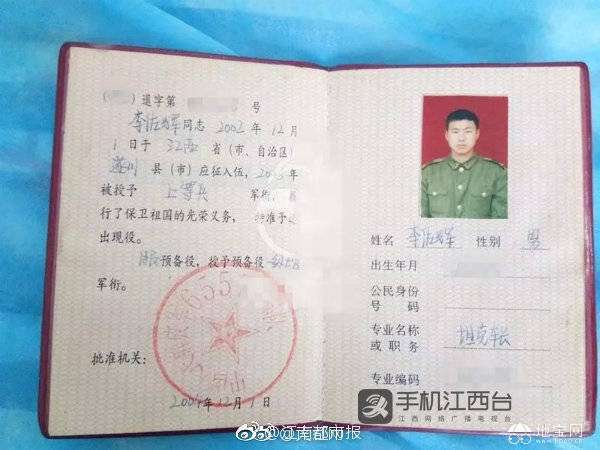 ( ) 道字第 号
同志 2002 年 12 月
1 日于 江西 省(市、自治区)
遂川 县(市)应征入伍,2003年
被授予 上等兵 军衔,
行了保卫祖国的光荣义务, 准予
出现役。
服预备役,授予预备役
军衔。
批准机关:
2004年12月1
姓名 性别 男
出生年月
公民身份
号 码
专业名称 坦克车长
或职务
专业编码
手机江西台
江西网络广播电视台
@江南都市报
地宝网